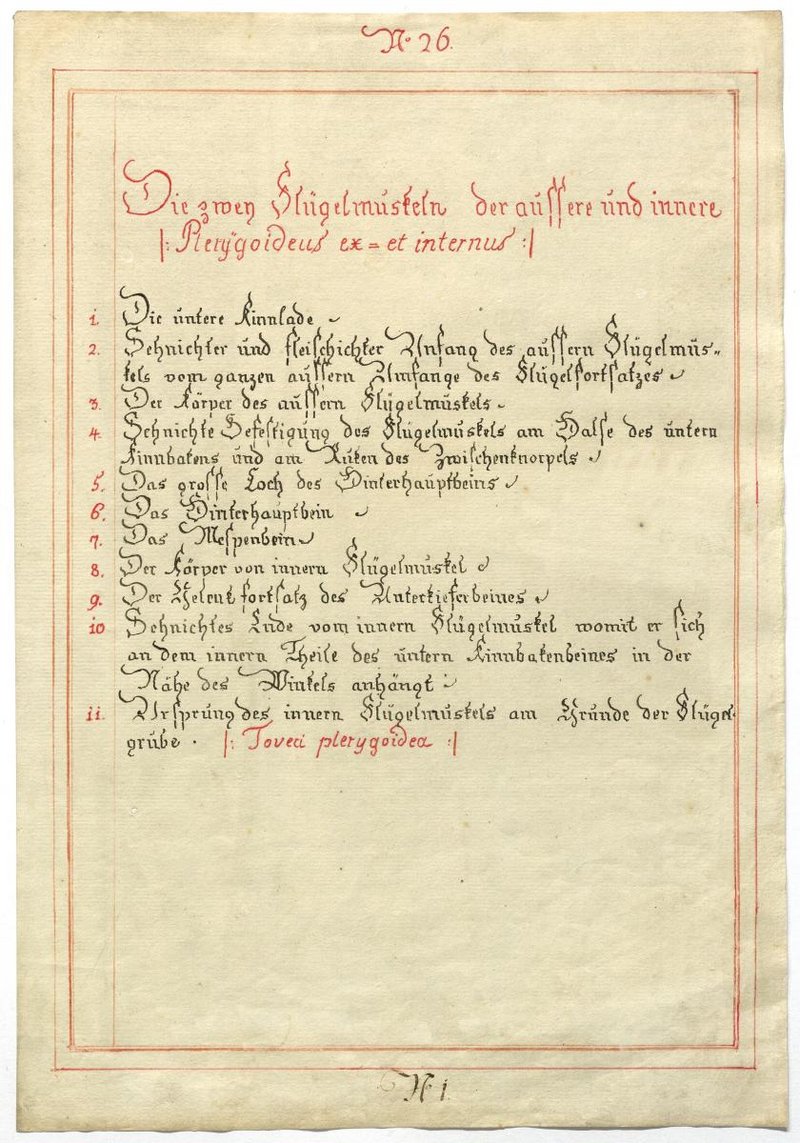 N° 26.
Die zwey Flügelmuskeln der aüssere und innere
|: Pterÿgoideus ex= et internus :|
1. Die untere Kinnlade
2. Sehnichter und fleischichter Anfang des aüssern Flügelmüs=
kels vom ganzen aüssern Umfange des Flügelfortsatzes
3. Der Körper des aüssern Flügelmuskels
4. Sehnichte Befestigüng des Flügelmuskels am Halse des üntern
Kinnbakens und am Rüken des Zwischenknorpels
5. Das grosse Loch des Hinterhaüptbeins
6. Das Hinterhauptbein
7. Das Wespenbein
8. Der Körper von innern Flügelmüskel
9. Der Gelenkfortsatz des Unterkieferbeines
10 Sehnichtes Ende vom innern Flügelmuskel womit er sich
an dem innern Theile des untern Kinnbakenbeines in der
Nähe des Winkels anhängt
11. Ursprüng des innern Flügelmüskels am Grunde der Flügel-
grübe. |: Foveci pterygoidea :|
N° 1.